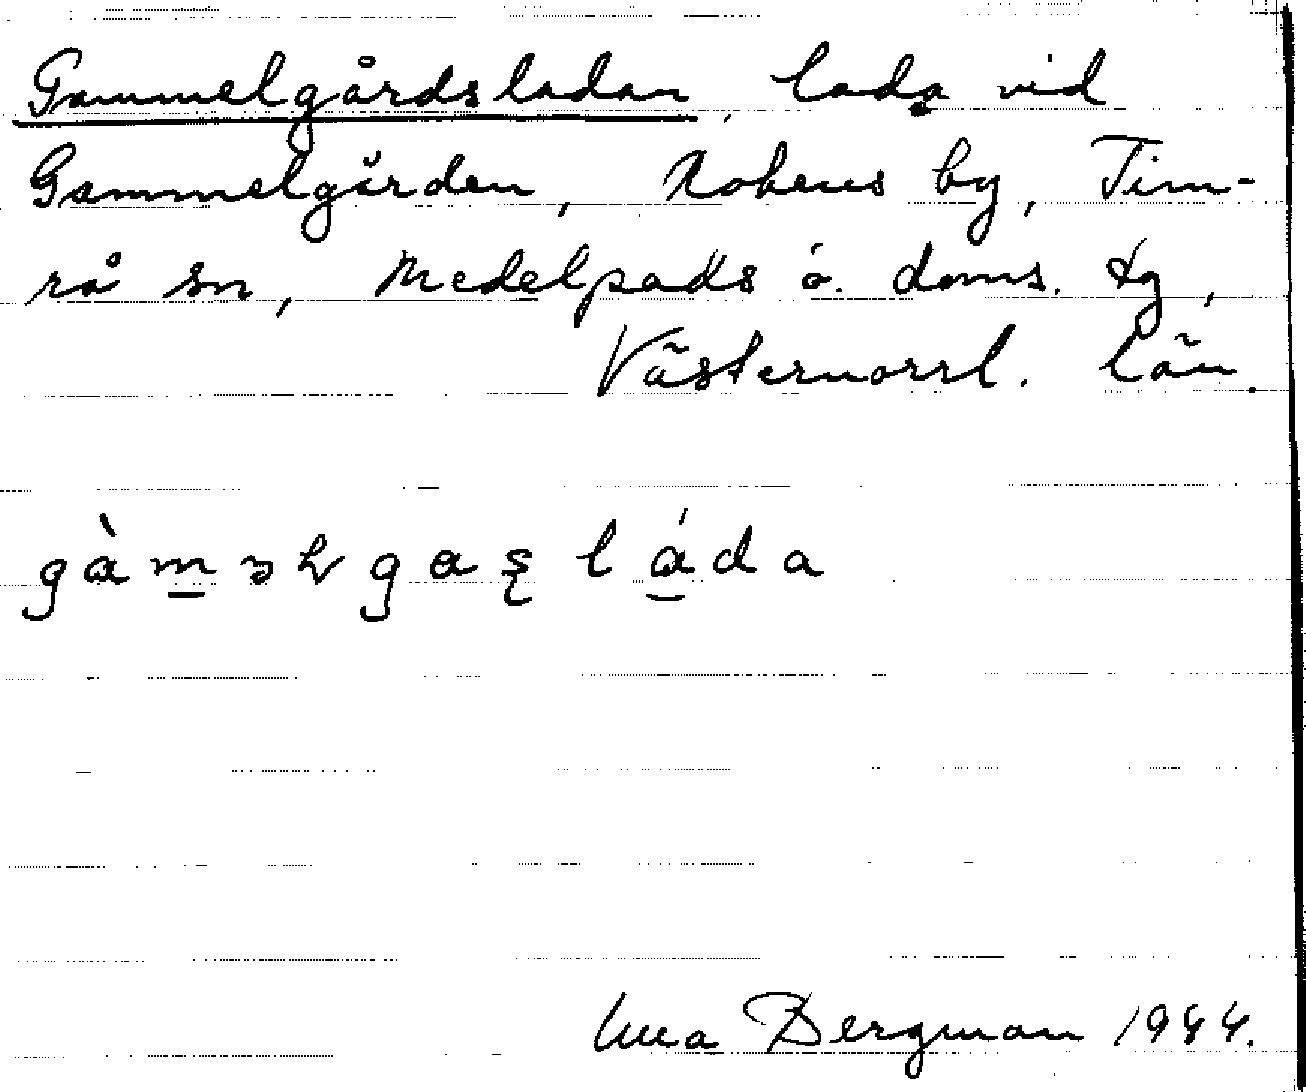 Gammelgårdsladan, lada vid
Gammelgården, by, Tim-
rå sn, Medelpads ö. doms. tg,
Västernorrl. län.
gàm̲əɫgaʂ lá̲da
Bergman 1944.